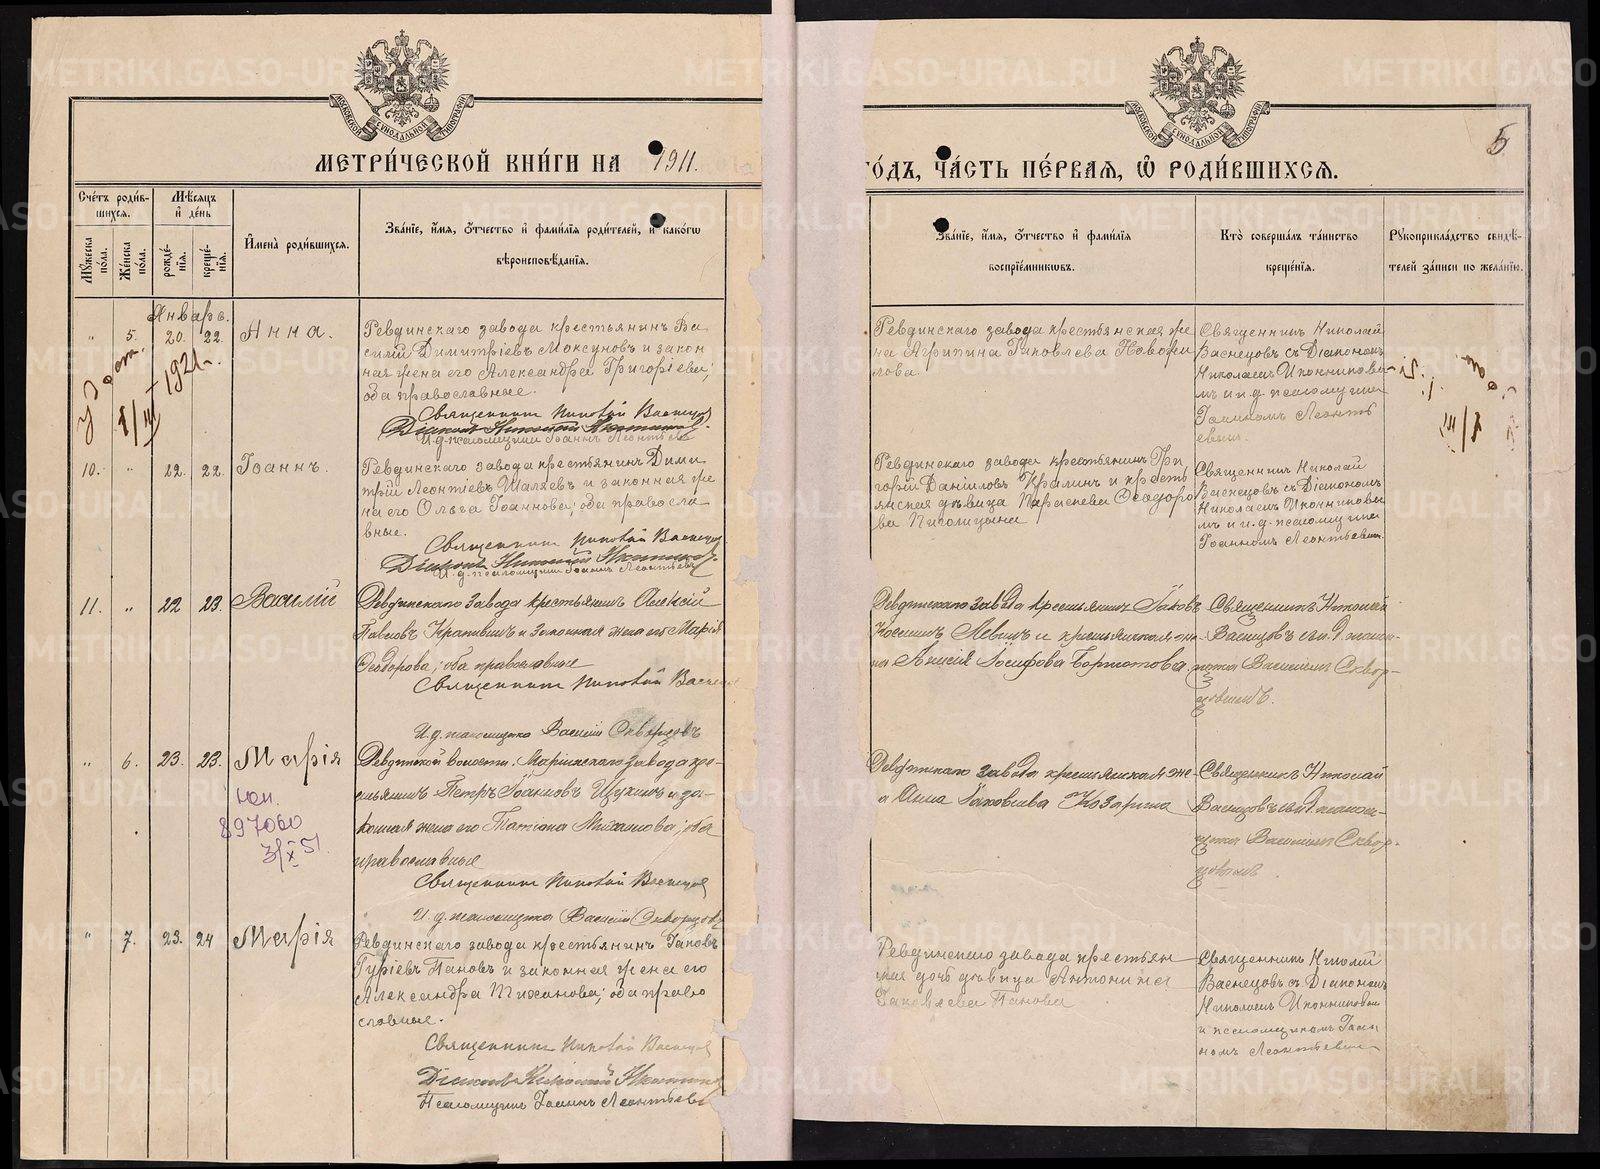 МЕТРИ́ЧЕСКОЙ КНИ́ГИ НА 1911.
ГО́ДЪ, ЧА́СТЬ ПЕ́РВАЯ, Ѿ РОДИ́ВШИХСЯ.
5
МОСКОВСКОЙ СѴНОДАЛЬНОЙ ТИПОГРАФІИ
МОСКОВСКОЙ СѴНОДАЛЬНОЙ ТИПОГРАФІИ
Сче́тъ роди́в-
шихся.
Мѣ́сяцъ
и҆ де́нь
Мꙋ́жеска по́ла.
Же́нска по́ла.
рожде́-
нїя.
креще́-
нїя.
И҆мена̀ роди́вшихся.
Зва́нїе, и҆́мя, ѻ҆́тчество и҆ фамѝлїя роди́телей, и҆ како́гѡ
вѣроисповѣ́данїя.
Зва́нїе, и҆́мя, ѻ҆́тчество и҆ фамѝлїя
воспрїе́мникѡвъ.
Кто̀ соверша́лъ та́инство
креще́нїя.
Рꙋкоприкла́дство свидѣ́-
телей за́писи по жела́нїю.
Январь.
" 5. 20. 22. Анна.
Ревдинскаго завода крестьянинъ Ва
силій Димитріевъ Моксуновъ и закон
ная жена его Александра Григоріева;
оба православные.
Священникъ Николай Васнецов
Діаконъ Николай Иконников
И.д. псаломщика Іоаннъ Леонтьев
Ревдинскаго завода крестьянская же
на Агрипина Яковлева Новожи
лова.
Священникъ Николай
Васнецовъ съ Діакономъ
Николаемъ Иконниковы
мъ и и.д. псаломщика
Іоанномъ Леонть
евым.
1921 г.
10. " 22. 22. Іоаннъ.
Ревдинскаго завода крестьянинъ Дими
трій Леонтіевъ Шаляевъ и законная же
на его Ольга Іоаннова; оба правосла
вные.
Священникъ Николай Васнецов
Діаконъ Николай Иконников
И.д. псаломщика Іоаннъ Леонтьев
Ревдинскаго завода крестьянинъ Гри
горій Даніиловъ Кралинъ и кресть
янская дѣвица Параскева Ѳеодоро
ва Пиколицына
Священникъ Николай
Васнецовъ съ Діакономъ
Николаемъ Иконниковы
мъ и и.д. псаломщика
Іоанномъ Леонтьевым
11. " 22 23. Василій
Ревдинскаго Завода крестьянинъ Алексій
Павловъ Крапивинъ и Законная жена его Марія
Ѳеодорова; оба православные
Священникъ Николай Васнецов
И.д. псаломщика Василій Скворцовъ
Ревдинскаго Завода крестьянинъ Яковъ
Косминъ Левинъ и крестьянская же-
на Анисія Іосифова Бормотова.
Священникъ Николай
Васнецовъ съ и.д. псалом-
щика Василіемъ Сквор-
цовымъ.
" 6. 23. 23. Марія
Ревдинской волости, Маріинскаго завода кре-
стьянинъ Петръ Іоанновъ Щукинъ и за-
конная жена его Татіана Михаилова; оба
православные
Священникъ Николай Васнецов
И.д. псаломщика Василій Скворцовъ
Ревдинскаго завода крестьянская же-
а Анна Яковлева Козырина
Священникъ Николай
Васнецовъ съ и.д псалом-
щика Василіемъ Сквор-
цовымъ
897060
3/X 51.
" 7. 23. 24 Марія
Ревдинскаго завода крестьянинъ Яковъ
Гуріевъ Пановъ и законная жена его
Александра Тиханова; оба право
славные.
Священникъ Николай Васнецов
Діаконъ Николай Иконников
Псаломщикъ Іоаннъ Леонтьевъ
Ревдинскаго завода крестьян
ская дочь дѣвица Антонина
Яковлева Панова
Священникъ Николай
Васнецовъ съ Діакономъ
Николаемъ Иконниковым
и псаломщикомъ Іоан
номъ Леонтьевым
METRIKI.GASO-URAL.RU